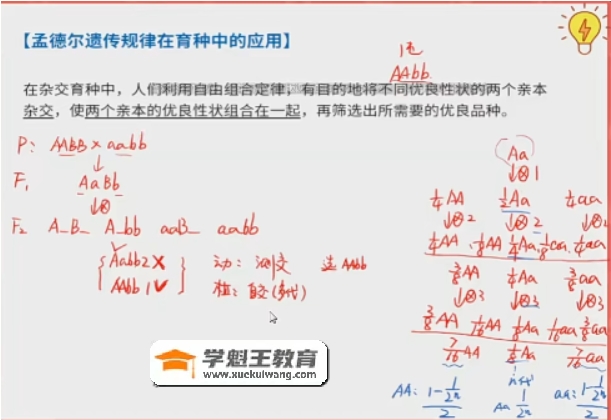 【孟德尔遗传规律在育种中的应用】
1种
AAbb
在杂交育种中，人们利用自由组合定律，有目的地将不同优良性状的两个亲本
杂交，使两个亲本的优良性状组合在一起，再筛选出所需要的优良品种。
P: AABB × aabb
F₁ AaBb
⊗
F₂ A_B_ A_bb aaB_ aabb
Aabb 2 ×
AAbb 1 ✓
动：测交 选AAbb
植：自交(多代)
Aa
⊗1
1/4 AA 1/2 Aa 1/4 aa
⊗2 ⊗2 ⊗2
1/4 AA · 1/8 AA 1/4 Aa · 1/8 aa · 1/4 aa
3/8 AA 1/4 Aa 3/8 aa
⊗3 ⊗3 ⊗3
3/8 AA 1/16 AA 1/8 Aa 1/16 aa 3/8 aa
7/16 AA 1/8 Aa 7/16 aa
AA: (1-1/2ⁿ)/2 Aa 1/2ⁿ aa: (1-1/2ⁿ)/2
学魁王教育
www.xuekuiwang.com